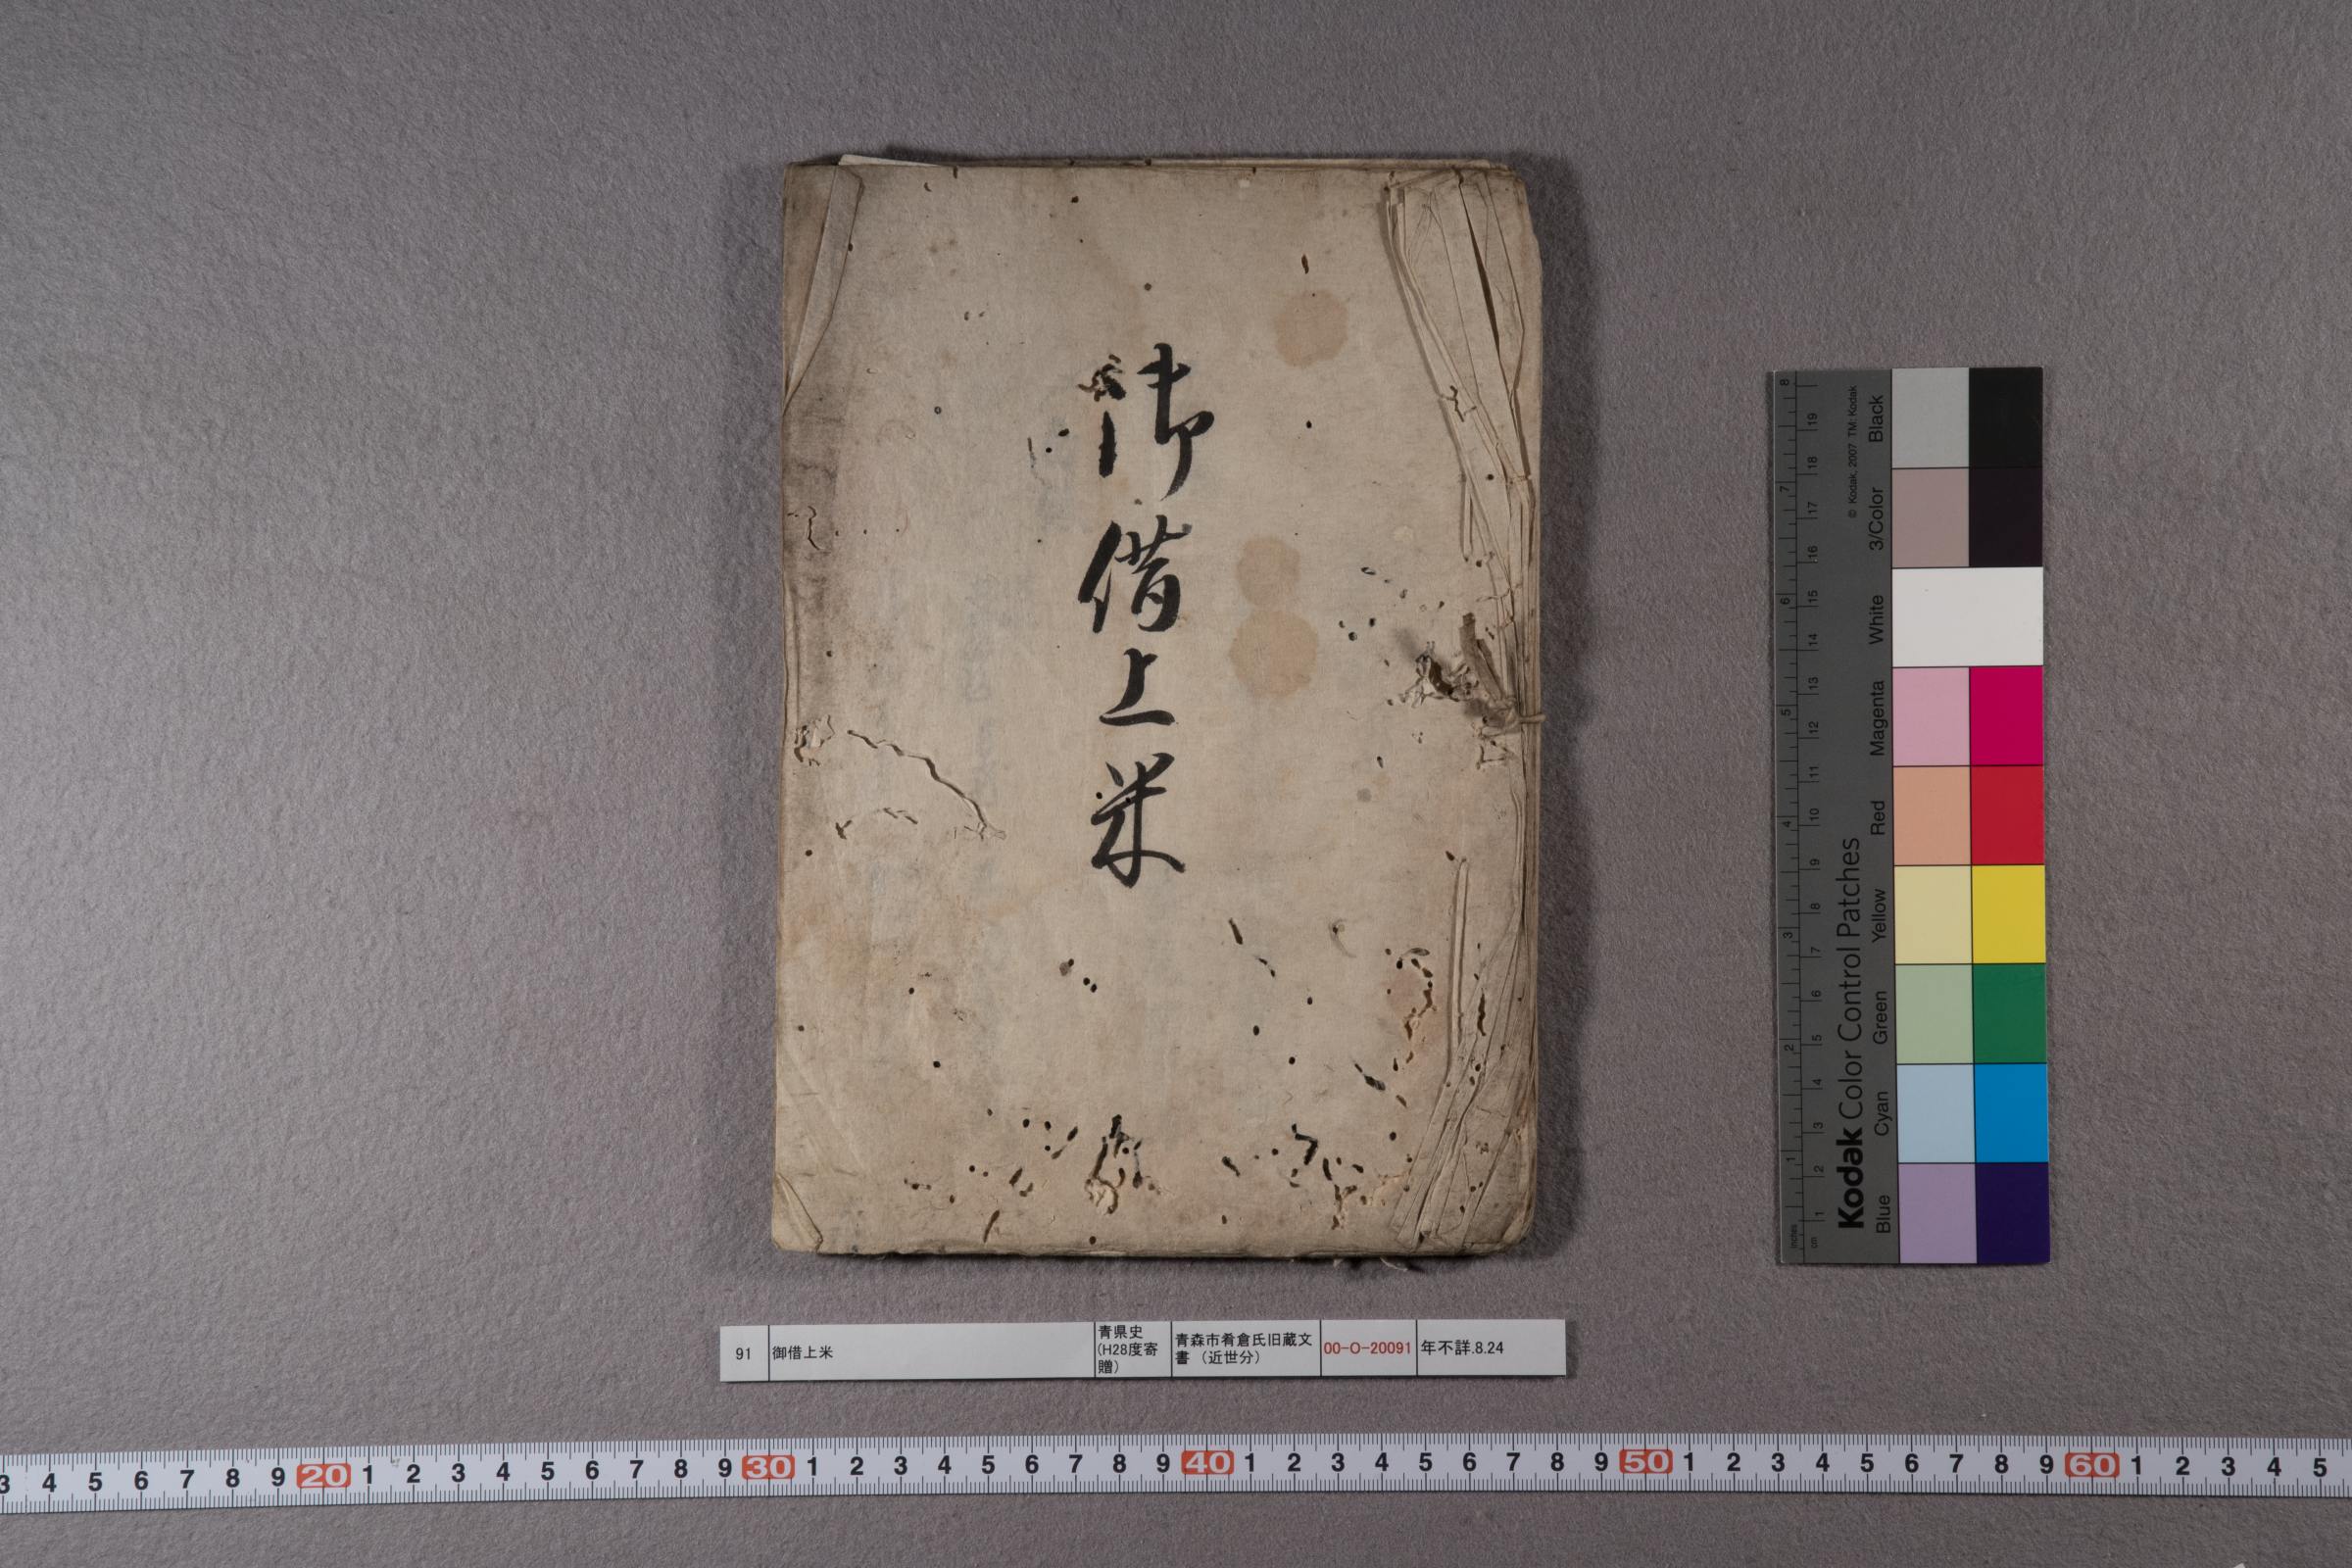 御借上米
91 御借上米 青県史(H28度寄贈) 青森市肴倉氏旧蔵文書（近世分） 00-O-20091 年不詳.8.24
3 4 5 6 7 8 9 20 1 2 3 4 5 6 7 8 9 30 1 2 3 4 5 6 7 8 9 40 1 2 3 4 5 6 7 8 9 50 1 2 3 4 5 6 7 8 9 60 1 2 3 4 5
Kodak Color Control Patches
© Kodak, 2007 TM: Kodak
Blue Cyan Green Yellow Red Magenta White 3/Color Black
inches 1 2 3 4 5 6 7 8
cm 1 2 3 4 5 6 7 8 9 10 11 12 13 14 15 16 17 18 19